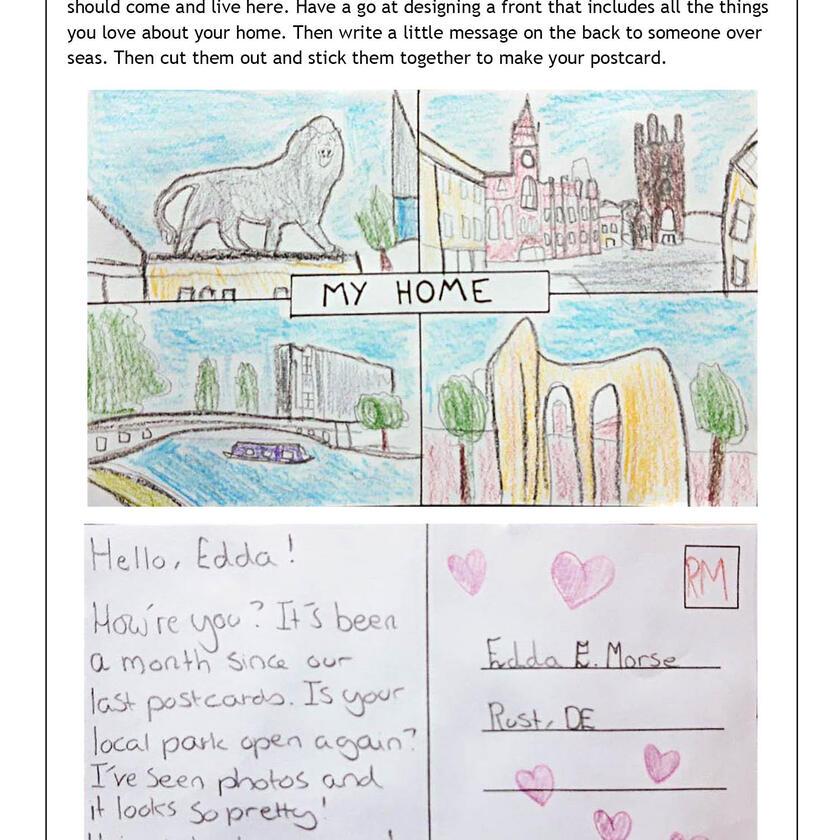 should come and live here. Have a go at designing a front that includes all the things
you love about your home. Then write a little message on the back to someone over
seas. Then cut them out and stick them together to make your postcard.
MY HOME
Hello, Edda!
How're you? It's been
a month since our
last postcards. Is your
local park open again?
I've seen photos and
it looks so pretty!
RM
Edda E. Morse
Rust, DE